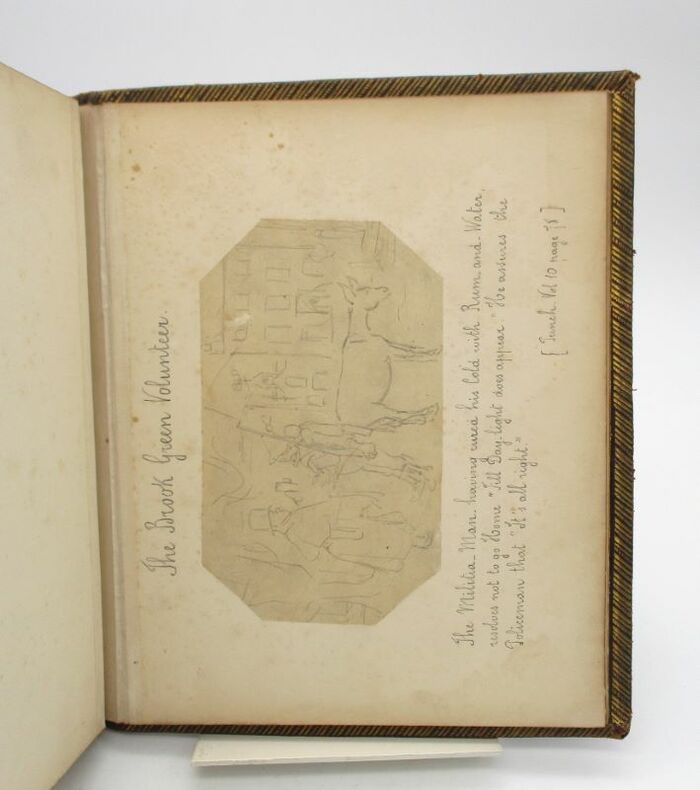 The Brook Green Volunteer.
The Militia-Man having cured his Cold with Rum-and-Water,
resolves not to go Home "Till Day-light does appear." He assures the
Policeman that "It's all right."
[Punch Vol 10 page